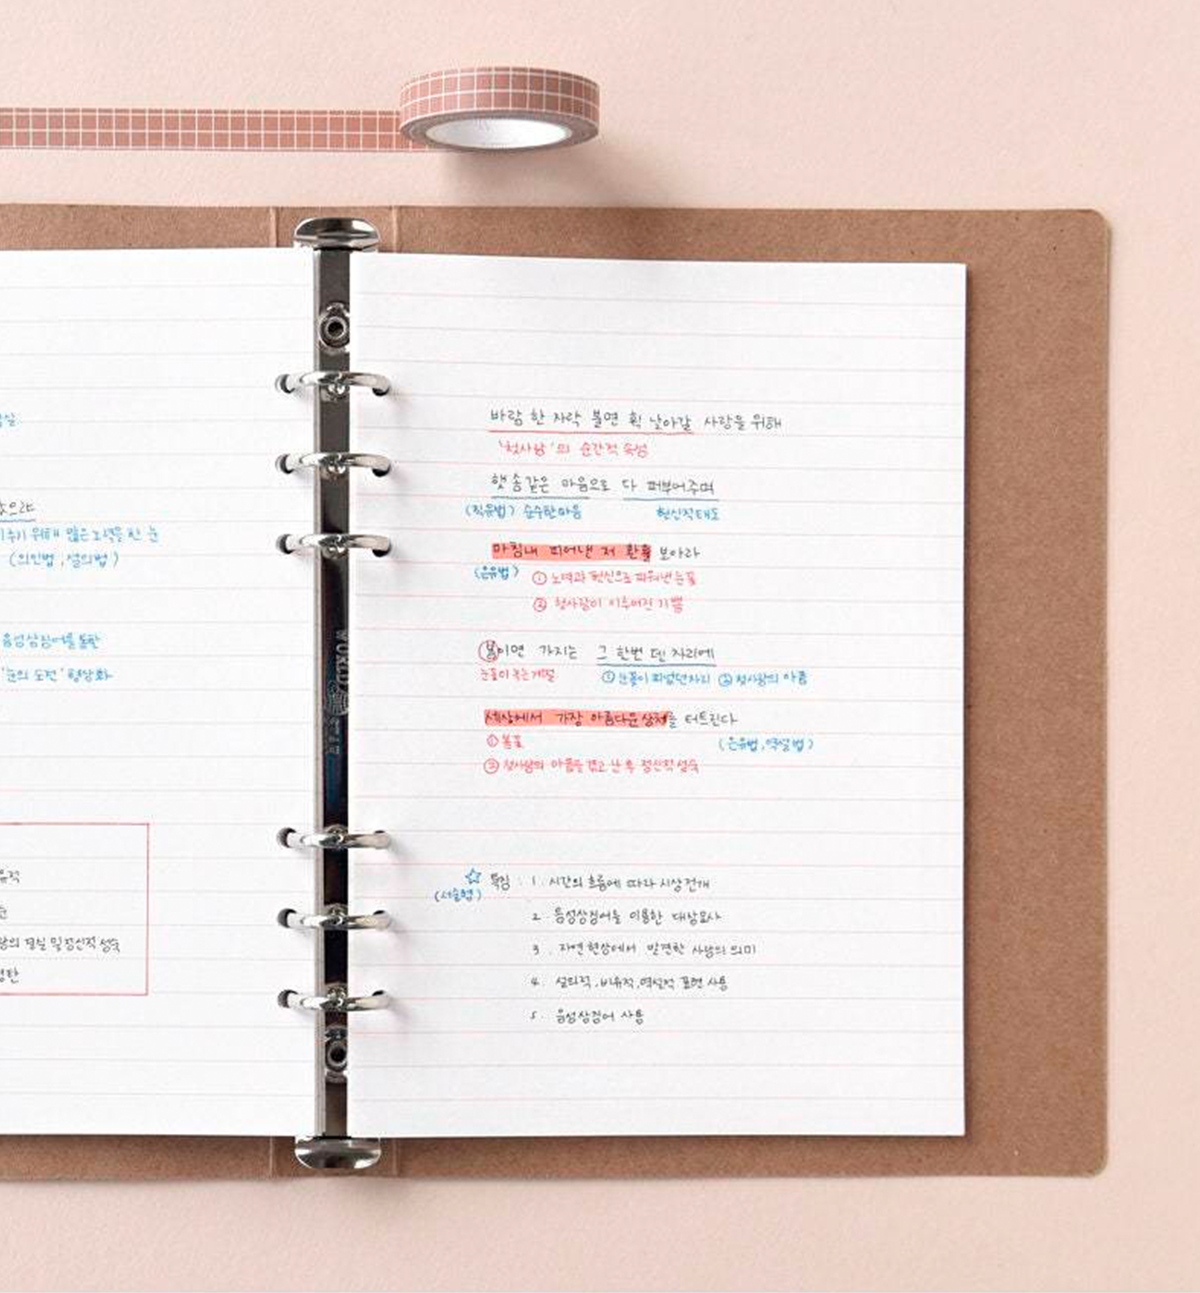 않으랴
위해 많은 노력을 한 눈
(의인법, 설의법)
음성상징어를 통한
'눈의 도전' 형상화
결실 및 정신적 성숙
바람 한 자락 불면 휙 날아갈 사랑을 위해
'첫사랑'의 순간적 속성
햇솜같은 마음으로 다 퍼부어주며
(직유법) 순수한 마음 헌신적 태도
마침내 피어낸 저 황홀 보아라
(은유법) ① 노력과 헌신으로 피워낸 눈꽃
② 첫사랑이 이루어진 기쁨
봄이면 가지는 그 한번 덴 자리에
눈꽃이 녹는 계절 ① 눈꽃이 피었던 자리 ② 첫사랑의 아픔
세상에서 가장 아름다운 상처를 터트린다
① 봄꽃 (은유법, 역설법)
② 첫사랑의 아픔을 겪고 난 후 정신적 성숙
☆ 특징 : 1. 시간의 흐름에 따라 시상 전개
(서술형)
2. 음성상징어를 이용한 대상묘사
3. 자연현상에서 발견한 사랑의 의미
4. 설의적, 비유적, 역설적 표현 사용
5. 음성상징어 사용
WORLD